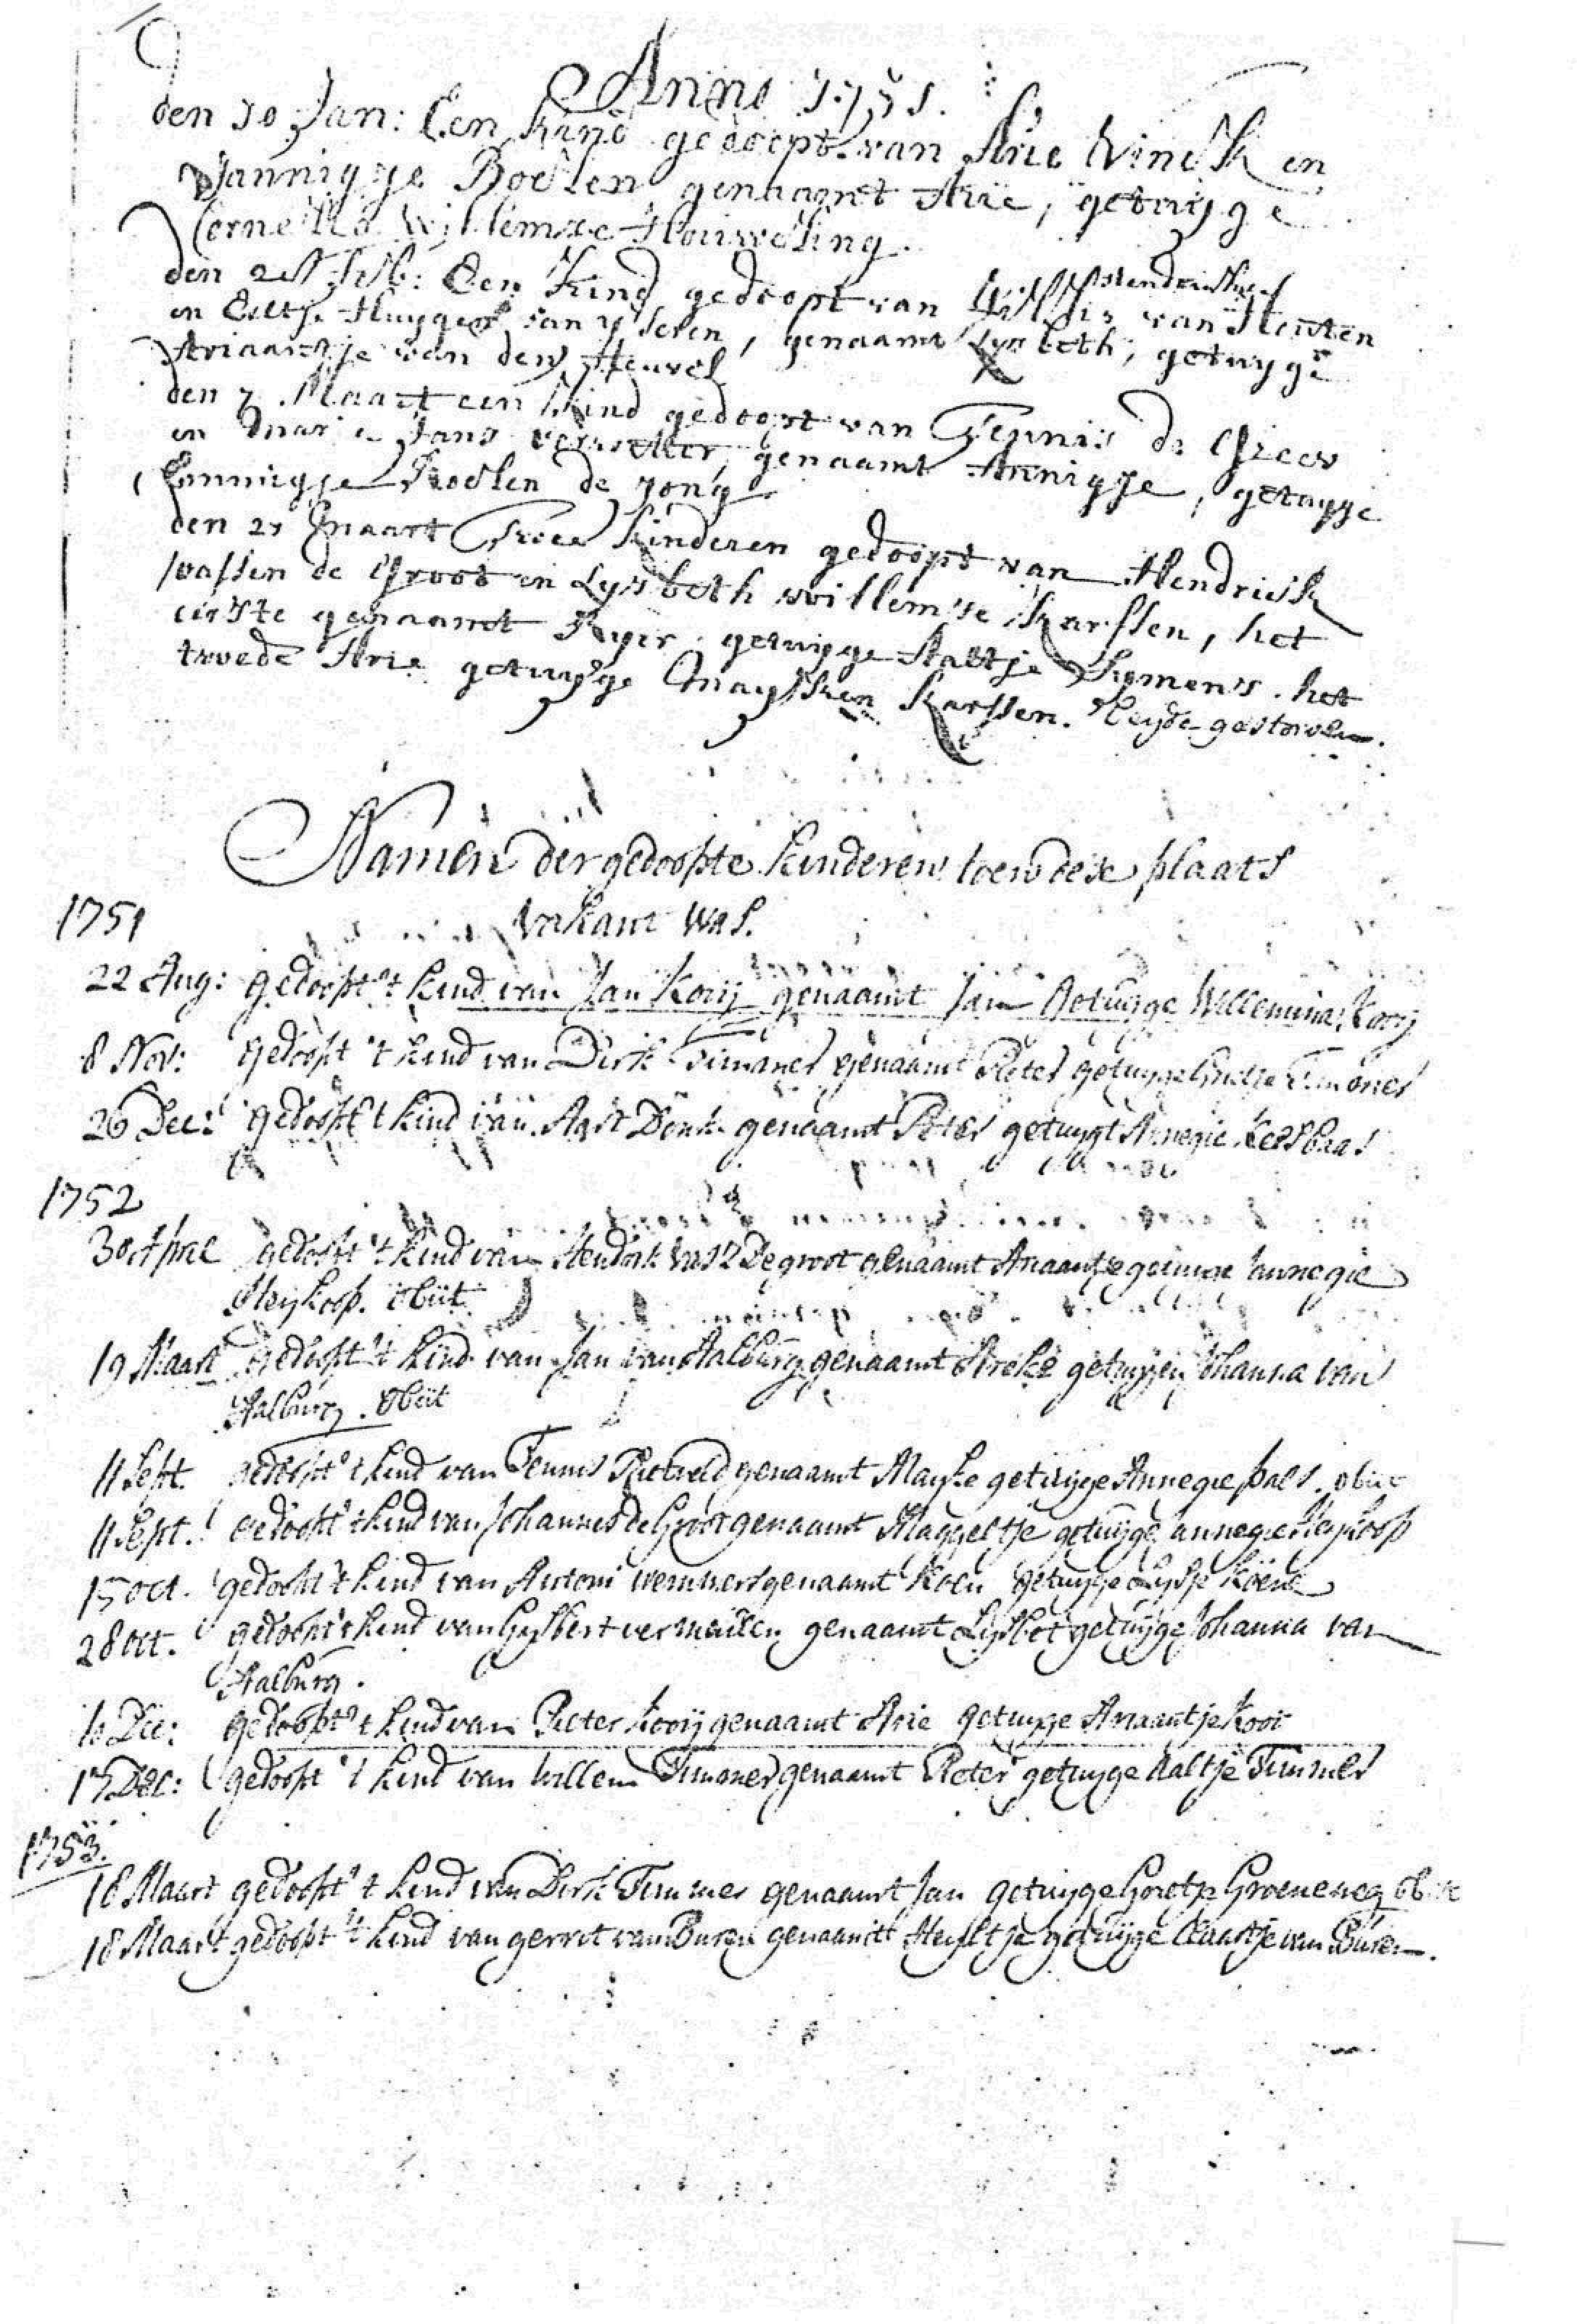 Anno 1751.
den 10 Jan: Een Kind gedoopt van Arie Vinck en
Jannigje Roelen genaamt Arie, getuijge
Cornelia Willemse Houweling.
den 21 Feb: Een Kind gedoopt van Willis Hendricksz van Heuten
en Eeltje Huygen van yseren, genaamt Lysbeth, getuyge
Ariaantje van den Heuvel
den 7 Maart een Kind gedoopt van Teunis de Greev
en Maria Jans genaamt Annigje, getuyge
Roelen de Jong
den 21 Maart Twee Kinderen gedoopt van Hendrick
Wassen de Groot en Lysbeth Willemse Karssen, het
eerste genaamt Ryer, getuijge Aaltje Symens. het
twede Arie getuyge Mayken Karssen. beyde gestorven.
Namen der gedoopte Kinderen toen dese plaats
1751
vakant was.
22 Aug: gedoopt 't kind van Jan Kooij genaamt Jan Getuijge Willemina Kooij
8 Nov: gedoopt 't kind van Dirk Timmer genaamt Pieter getuyge Timmer
26 Dec: gedoopt 't kind van Aart Donk genaamt Peter getuygt Annegie Keesbaas
1752
30 April gedoopt 't kind van Hendrik Vas De groot genaamt Ariaantje getuige Annegie
Heykoop. Obiit
19 Maart gedoopt 't kind van Jan van Aalburg genaamt getuygen Johanna van
Aalburg. Obiit
11 Sept. gedoopt 't kind van Teunis Rietveld genaamt Mayke getuijge Annegie pals. obiit
11 Sept. gedoopt 't kind van Johannes de Groot genaamt Maggeltje getuijge Annegie Heykoop
15 Oct. gedoopt 't kind van Antoni wemmers genaamt Koen getuyge Lysje Koene
28 Oct. gedoopt 't kind van Gysbert vermeulen genaamt Lysbet getuijge Johanna van
Aalburg.
10 Dec: gedoopt 't kind van Pieter Kooij genaamt Arie getuyge Ariaantje Kooi
17 Dec: gedoopt 't kind van Willem Timmer genaamt Pieter getuyge Aaltje Timmer
1753.
18 Maart gedoopt 't kind van Dirk Timmer genaamt Jan getuyge Groetje Groeneweg obiit
18 Maart gedoopt 't kind van gerrit van Buren genaamt Heyltje getuijge Claartje van Buren.